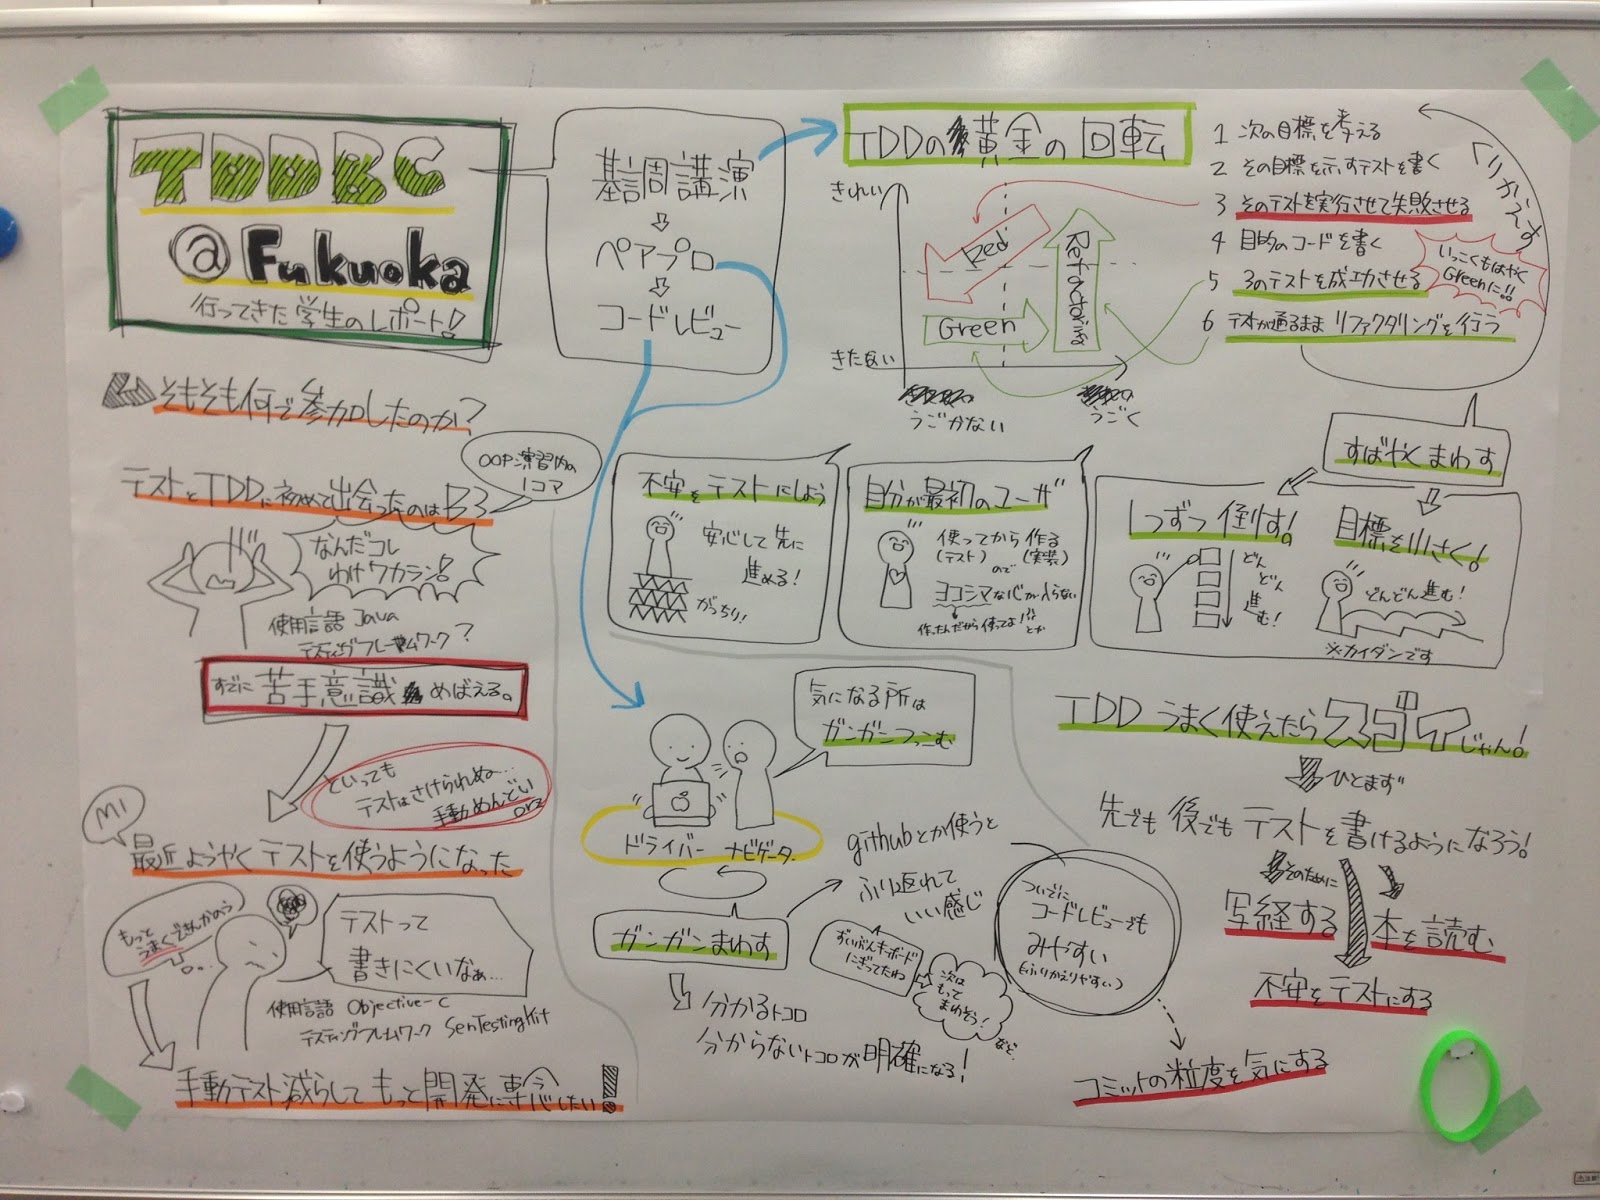 TDDBC
@Fukuoka
行ってきた学生のレポート!
基調講演
ペアプロ
コードレビュー
TDDの黄金の回転
きれい
きたない
うごかない
うごく
Red
Green
Refactoring
1 次の目標を考える
2 その目標を示すテストを書く
3 そのテストを実行させて失敗させる
4 目的のコードを書く
5 3のテストを成功させる
6 テストが通るまま リファクタリングを行う
くりかえす
いっこくもはやく
Greenに!!
すばやくまわす
1つずつ倒す!
どん
どん
進む!
目標を小さく!
どんどん進む!
※カイダンです
不安をテストにしよう
安心して先に
進める!
がっちり!
自分が最初のユーザ
使ってから 作る
(テスト) (実装)
ので
ヨコシマな心が入らない
作ったんだから使ってよ!
とか
そもそも何で参加したのか?
テストとTDDに初めて出会ったのはB3
OOP演習内の
1コマ
なんだコレ
わけワカラン!
使用言語 Java
テスティングフレームワーク?
すでに苦手意識めばえる。
といっても
テストはさけられぬ…
手動めんどい
orz
M1
最近ようやくテストを使うようになった
もっと
うまくできんかのう
テストって
書きにくいなぁ…
使用言語 Objective-C
テスティングフレームワーク SenTestingKit
手動テスト減らして もっと開発に専念したい!
気になる所は
ガンガンつっこむ
ドライバー ナビゲータ
ガンガンまわす
分かるトコロ
分からないトコロが明確になる!
githubとか使うと
ふり返れて
いい感じ
ずいぶんキーボード
にぎってたね
次は
もって
まわそう!
など
ついでに
コードレビューでも
みやすい
(ふりかえりやすい)
コミットの粒度を気にする
TDD うまく使えたらスゴイじゃん!
ひとまず
先でも後でもテストを書けるようになろう!
そのために
写経する
本を読む
不安をテストにする